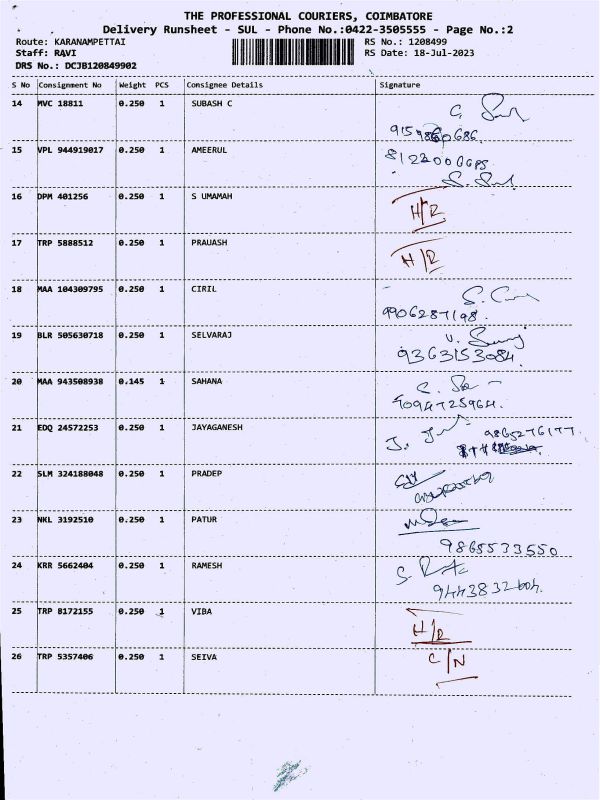 THE PROFESSIONAL COURIERS, COIMBATORE
Delivery Runsheet - SUL - Phone No.:0422-3505555 - Page No.:2
Route: KARANAMPETTAI RS No.: 1208499
Staff: RAVI RS Date: 18-Jul-2023
DRS No.: DCJB120849902
S No Consignment No Weight PCS Consignee Details Signature
14 MVC 18811 0.250 1 SUBASH C
15 VPL 944919017 0.250 1 AMEERUL
16 DPM 401256 0.250 1 S UMAMAH H/R
17 TRP 5888512 0.250 1 PRAUASH H/R
18 MAA 104309795 0.250 1 CIRIL
9906287198.
19 BLR 505630718 0.250 1 SELVARAJ
9363153084.
20 MAA 943508938 0.145 1 SAHANA
9094725964.
21 EDQ 24572253 0.250 1 JAYAGANESH 9865276177.
22 SLM 324188048 0.250 1 PRADEP
23 NKL 3192510 0.250 1 PATUR
9865533550
24 KRR 5662404 0.250 1 RAMESH
9443832604.
25 TRP 8172155 0.250 1 VIBA H/R
26 TRP 5357406 0.250 1 SEIVA C/N